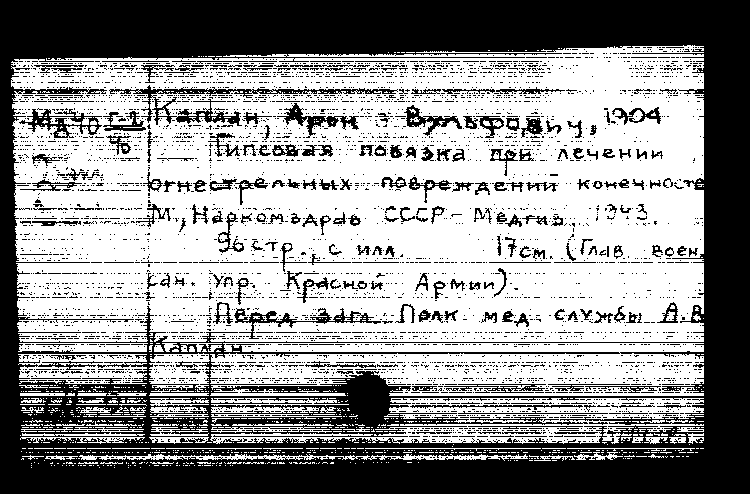 Мд40 г-1 Каплан, Арон Вульфович, 1904
90 Гипсовая повязка при лечении
2 экз.
огнестрельных повреждений конечносте
М., Наркомздрав СССР - Медгиз, 1943.
96 стр., с илл. 17 см. (Глав. воен.
сан. упр. Красной Армии).
Перед загл. Полк. мед. службы А.В
Каплан.